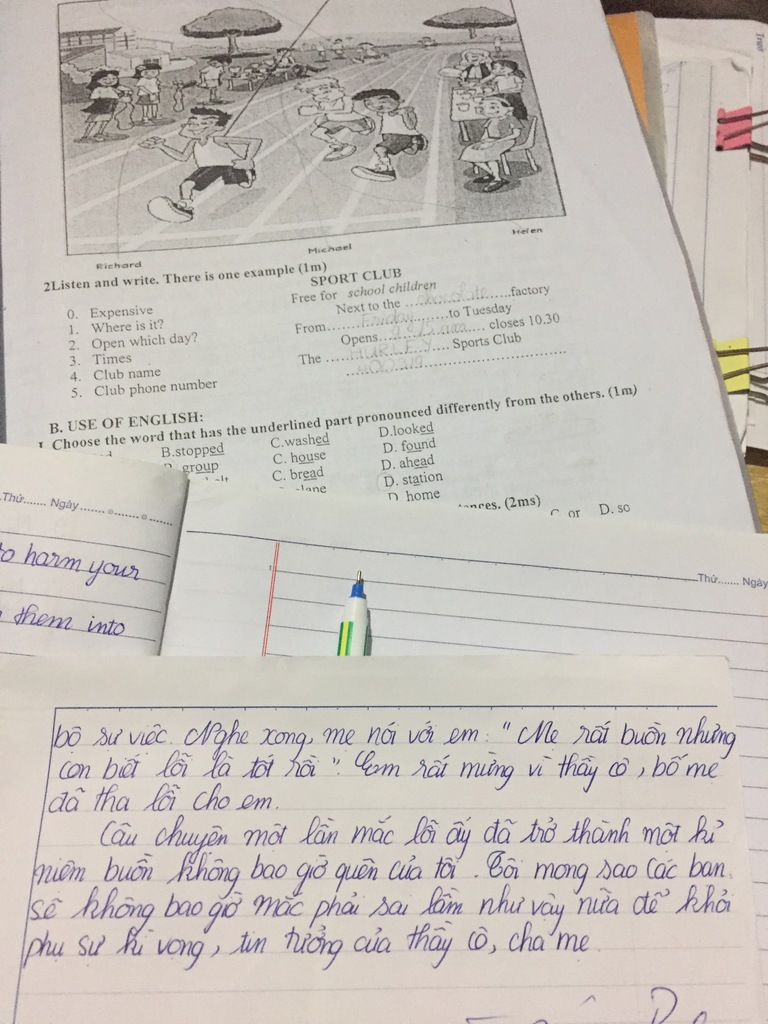 Richard
Michael
Helen
2Listen and write. There is one example (1m)
SPORT CLUB
0. Expensive
Free for school children
1. Where is it?
Next to the chocolate factory
2. Open which day?
From Friday to Tuesday
3. Times
Opens closes 10.30
4. Club name
The HURLEY Sports Club
5. Club phone number
B. USE OF ENGLISH:
I Choose the word that has the underlined part pronounced differently from the others. (1m)
B.stopped C.washed D.looked
group C. house D. found
C. bread D. ahead
D. station
D home
(2ms)
C or D. so
Thứ....... Ngày
to harm your
them into
Thứ....... Ngày
bộ sự việc. Nghe xong, mẹ nói với em: "Mẹ rất buồn nhưng
con biết lỗi là tốt rồi". Em rất mừng vì thầy cô, bố mẹ
đã tha lỗi cho em.
Câu chuyện một lần mắc lỗi ấy đã trở thành một kỉ
niệm buồn không bao giờ quên của tôi. Tôi mong sao các bạn
sẽ không bao giờ mắc phải sai lầm như vậy nữa để khỏi
phụ sự kì vọng, tin tưởng của thầy cô, cha mẹ.